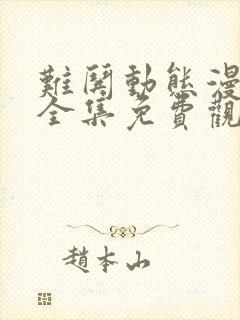 難鬥動態漫
全集免費觀
趙本山